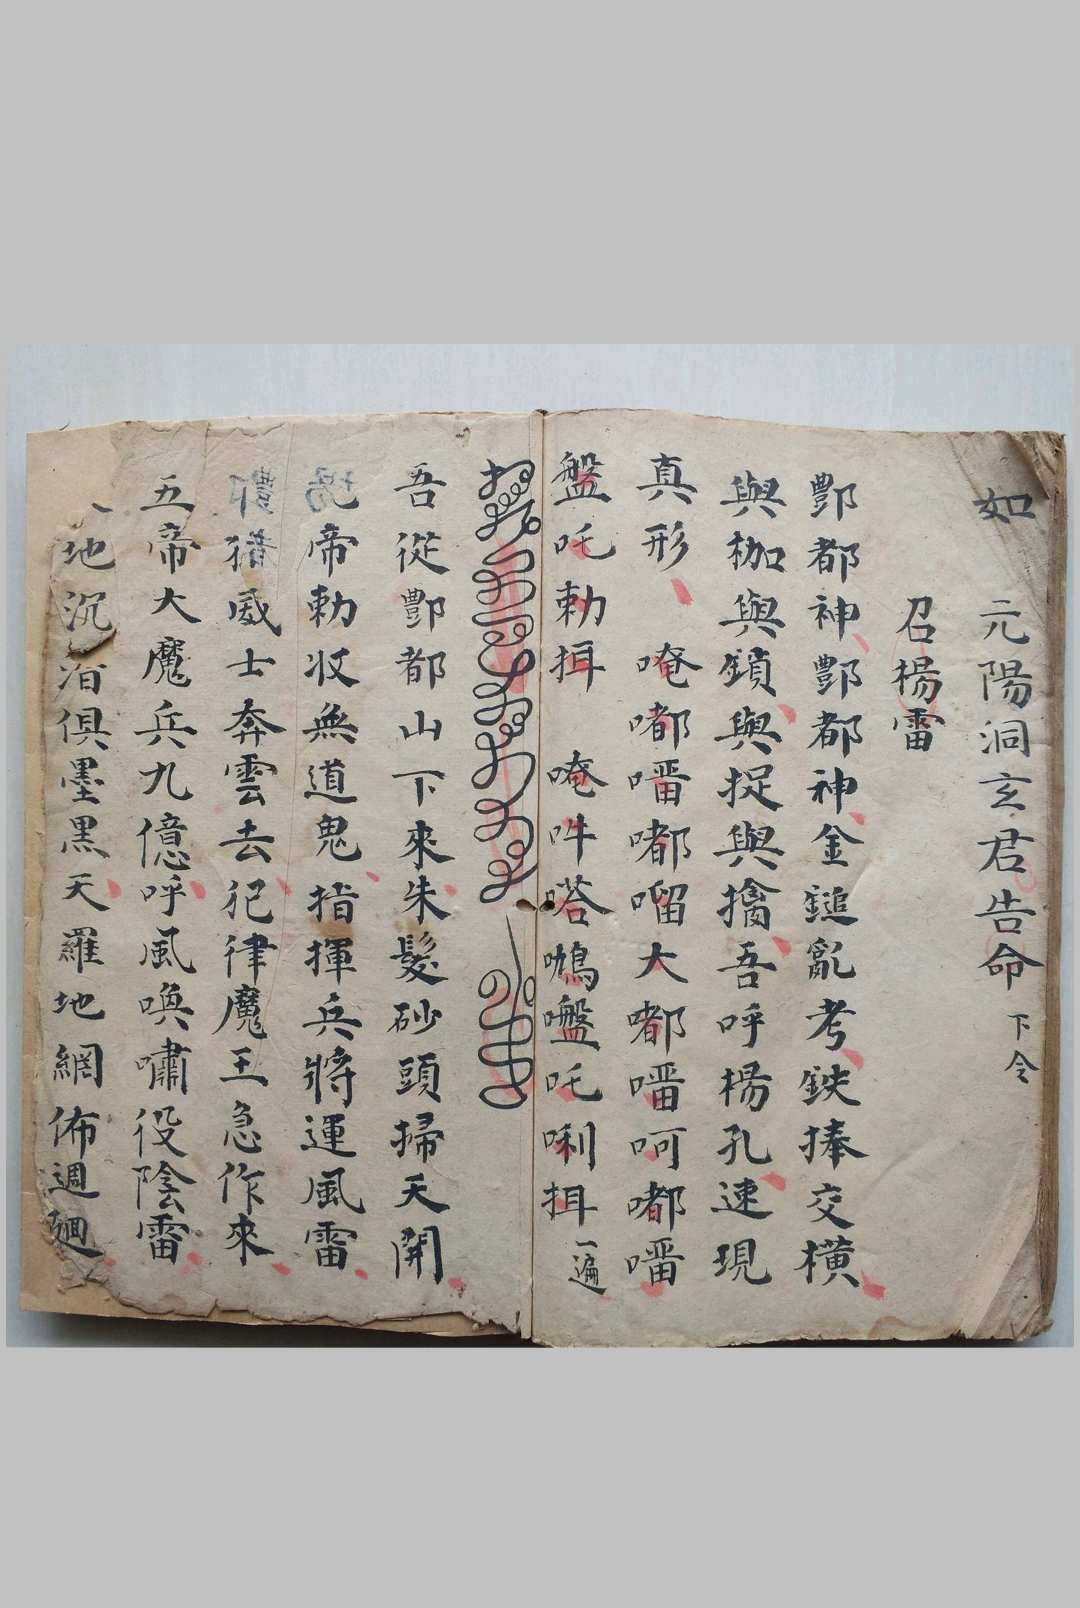 如
元陽洞玄君告命 下令
召楊雷
酆都神酆都神金鎚亂考鉄捧交橫
與枷與鎖與捉與擒吾呼楊孔速現
真形 唵嘟噃嘟㗰大嘟噃呵嘟噃
盤吒勅揖 唵吽嗒盤吒唎揖一遍
吾從酆都山下來朱髮砂頭掃天開
帝勅收無道鬼指揮兵將運風雷
猪威士奔雲去犯律魔王急作來
五帝大魔兵九億呼風喚嘯役陰雷
地沉泊俱墨黑天羅地網佈週廻